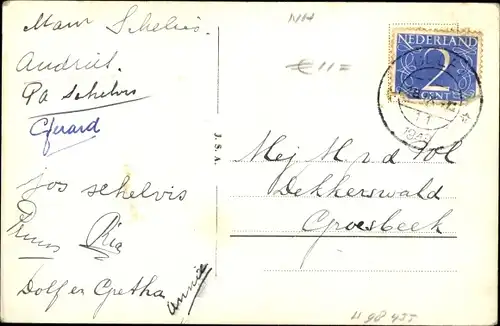 Mam Schelvis.
Andriet.
Pa Schelvis
Gerard
Jos Schelvis
Ria
Dolf en Gretha
Annie
J.S.A.
NH
€ 11=
NEDERLAND
2
CENT
11
Mej M v d Pol
Dekkerswald
Groesbeek
498 455